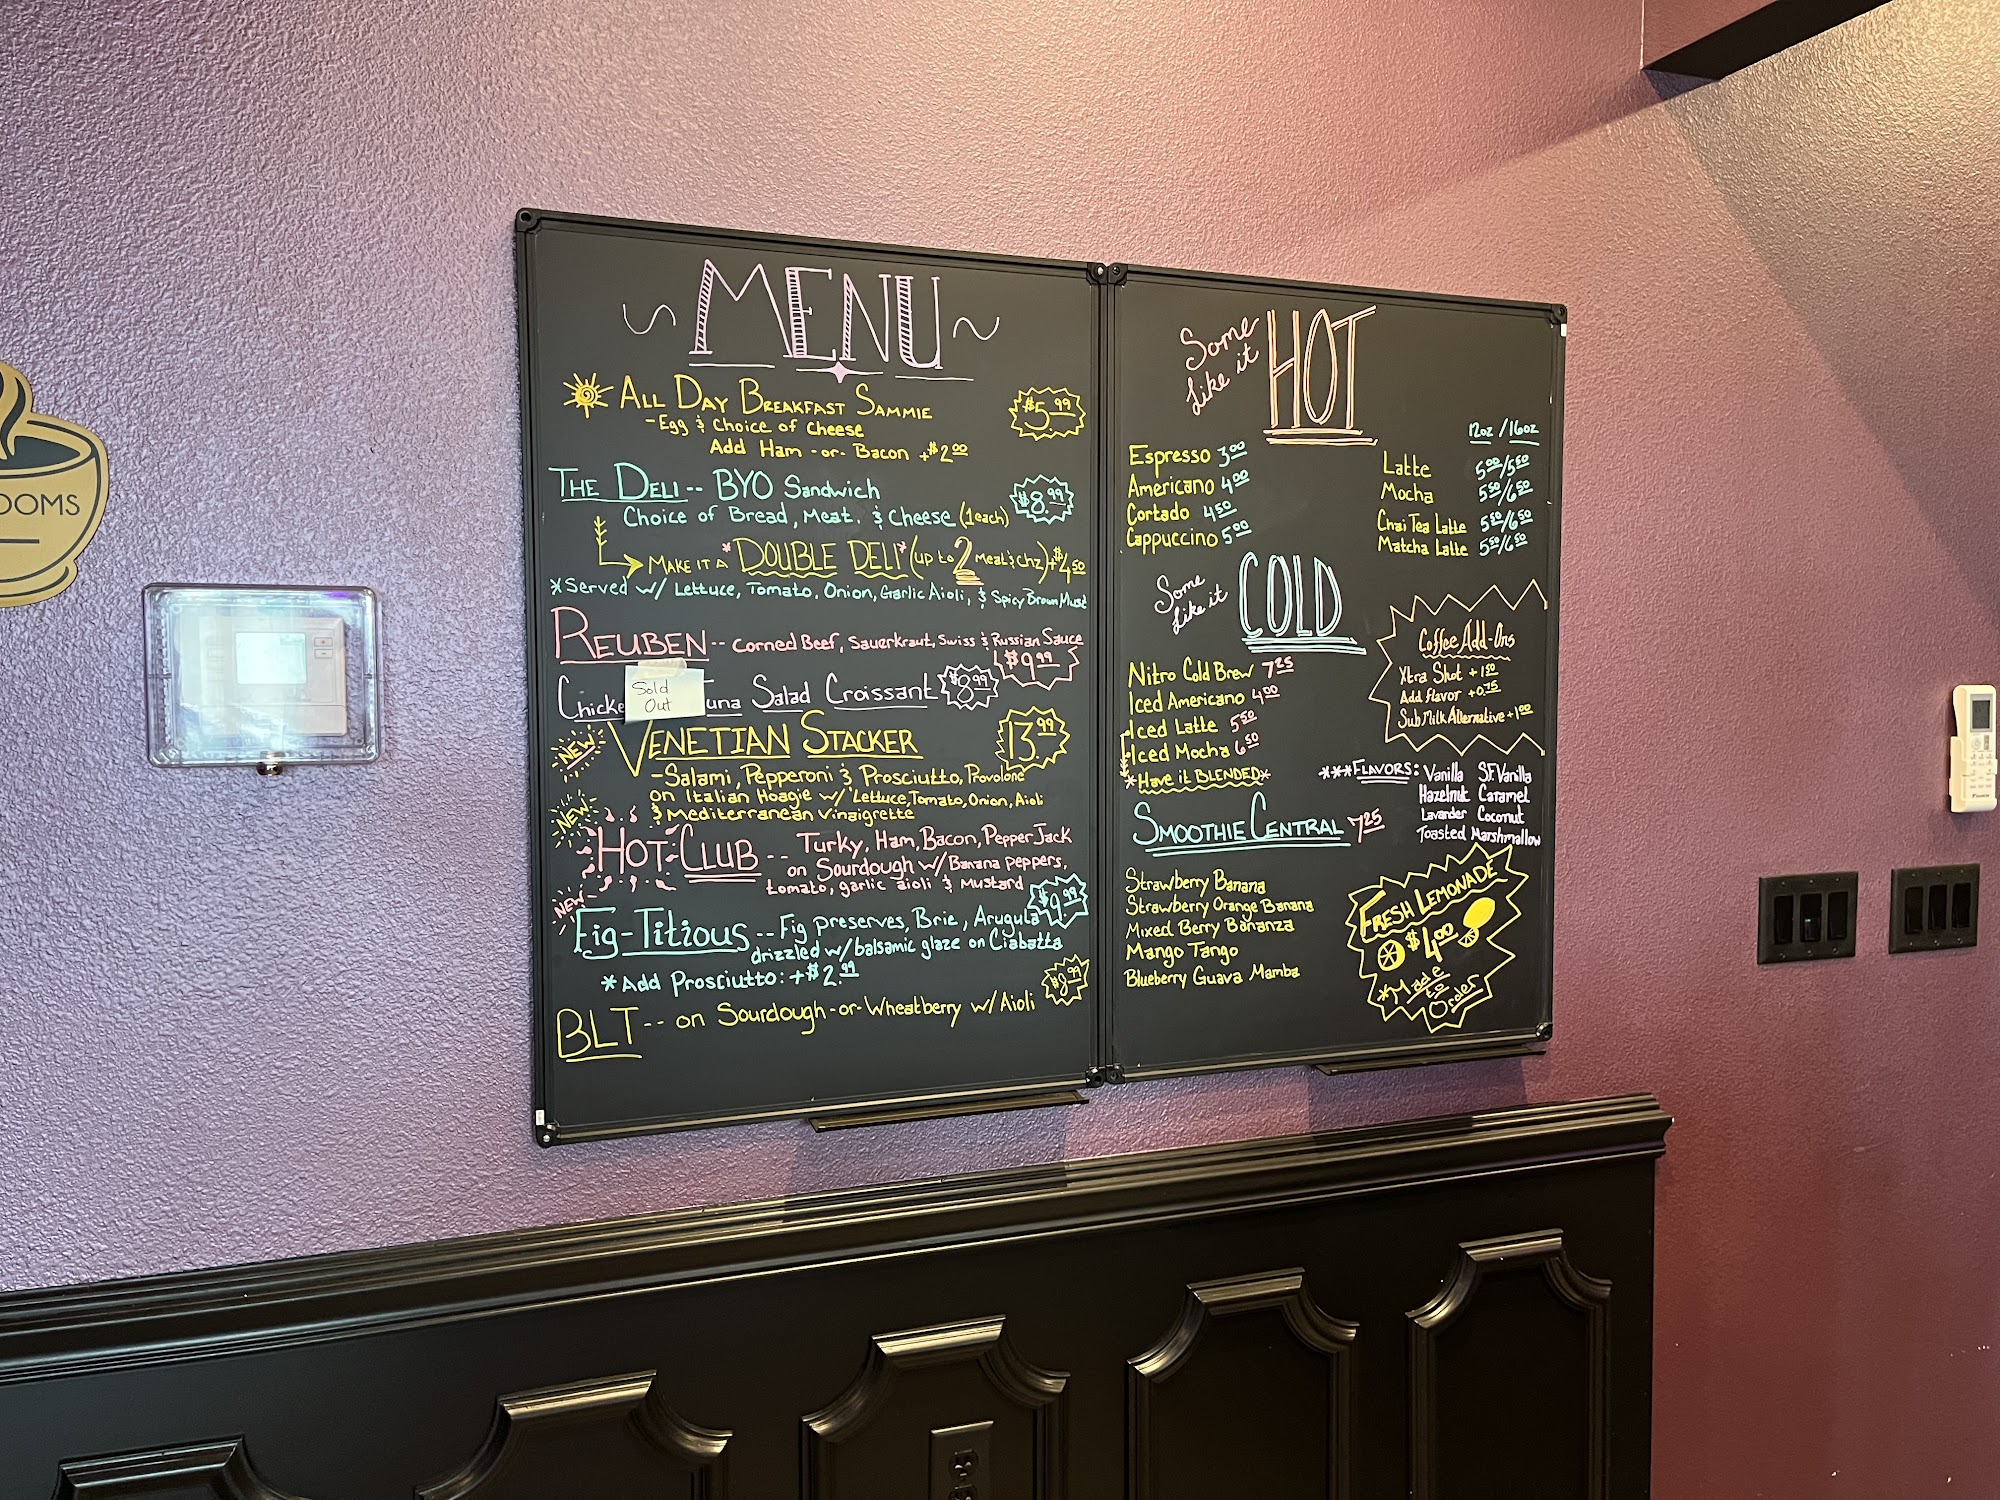 OOMS
MENU
ALL DAY BREAKFAST SAMMIE $5.99
-Egg & Choice of Cheese
Add Ham -or- Bacon +$2.00
THE DELI -- BYO Sandwich $8.99
Choice of Bread, Meat, & Cheese (1each)
MAKE IT A "DOUBLE DELI" (up to 2 Meat & Chz) +$4.50
*Served w/ Lettuce, Tomato, Onion, Garlic Aioli, & Spicy Brown Must
REUBEN -- Corned Beef, Sauerkraut, Swiss & Russian Sauce
$9.99
Chicke Sold Out una Salad Croissant $8.99
NEW VENETIAN STACKER 13.99
-Salami, Pepperoni & Prosciutto, Provolone
on Italian Hoagie w/ Lettuce, Tomato, Onion, Aioli
& Mediterranean Vinaigrette
NEW HOT CLUB -- Turky, Ham, Bacon, Pepper Jack
on Sourdough w/ Banana peppers,
tomato, garlic aioli & Mustard
NEW Fig-Titious -- Fig preserves, Brie, Arugula $9.99
drizzled w/ balsamic glaze on Ciabatta
*Add Prosciutto: +$2.99
BLT -- on Sourdough -or- Wheatberry w/ Aioli $8.99
Some Like it HOT
12oz / 16oz
Espresso 3.00
Americano 4.00
Cortado 4.50
Cappuccino 5.00
Latte 5.00/5.50
Mocha 5.50/6.50
Chai Tea Latte 5.50/6.50
Matcha Latte 5.50/6.50
Some Like it COLD
Nitro Cold Brew 7.25
Iced Americano 4.00
Iced Latte 5.50
Iced Mocha 6.50
*Have it BLENDED*
Coffee Add-Ons
Xtra Shot +1.50
Add flavor +0.75
Sub Milk Alternative +1.00
***FLAVORS: Vanilla S.F. Vanilla
Hazelnut Caramel
Lavander Coconut
Toasted Marshmallow
SMOOTHIE CENTRAL 7.25
Strawberry Banana
Strawberry Orange Banana
Mixed Berry Bonanza
Mango Tango
Blueberry Guava Mamba
FRESH LEMONADE
$4.00
*Made
to
Order